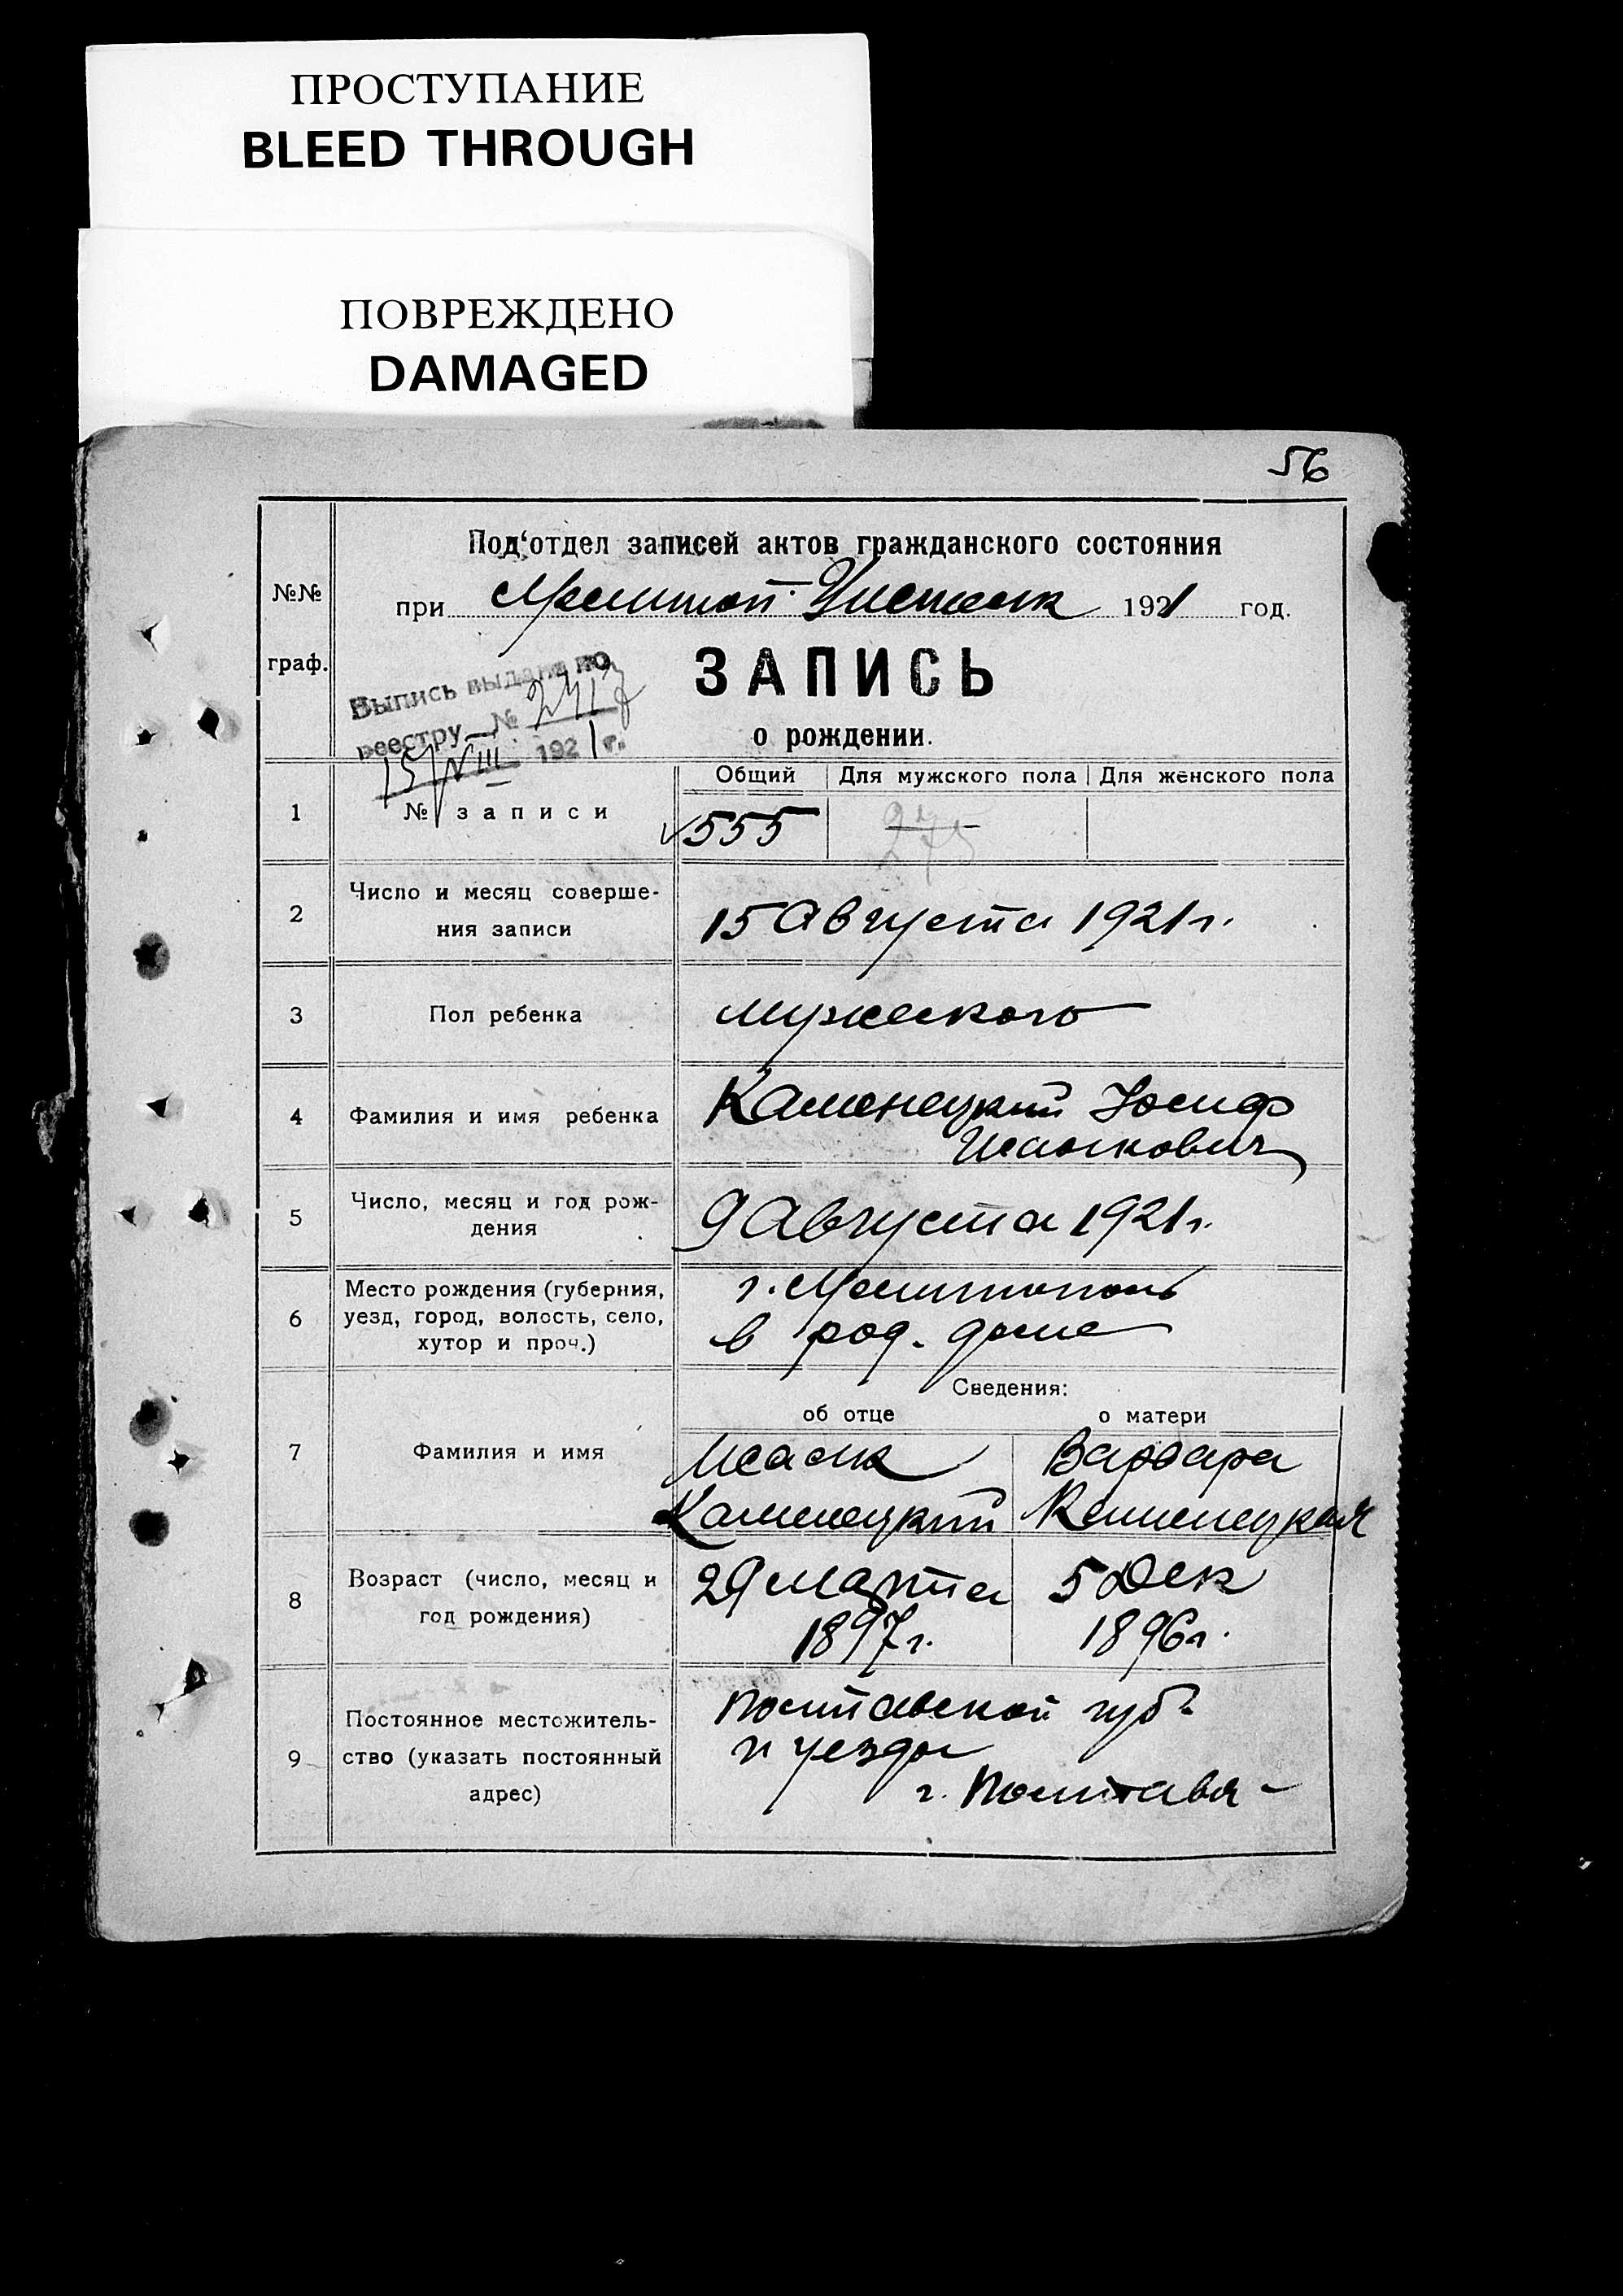 ПРОСТУПАНИЕ
BLEED THROUGH
ПОВРЕЖДЕНО
DAMAGED
56
Под'отдел записей актов гражданского состояния
при 1921 год.
№№
граф.
ЗАПИСЬ
о рождении.
Выпись выдана по
реестру №
15/VIII 1921 г.
Общий Для мужского пола Для женского пола
1 № записи 555 275
2 Число и месяц соверше-
ния записи
15 Августа 1921 г.
3 Пол ребенка мужеского
4 Фамилия и имя ребенка Каменецкий Иосиф
Исаакович
5 Число, месяц и год рож-
дения
9 Августа 1921 г.
6 Место рождения (губерния,
уезд, город, волость, село,
хутор и проч.)
г. Мелитополь
в род. доме
Сведения:
об отце о матери
7 Фамилия и имя
Исаак Варвара
Каменецкий Каменецкая
8 Возраст (число, месяц и
год рождения)
29 марта 5 Дек
1897 г. 1896 г.
9 Постоянное местожитель-
ство (указать постоянный
адрес)
Полтавской губ.
и уезда
г. Полтава